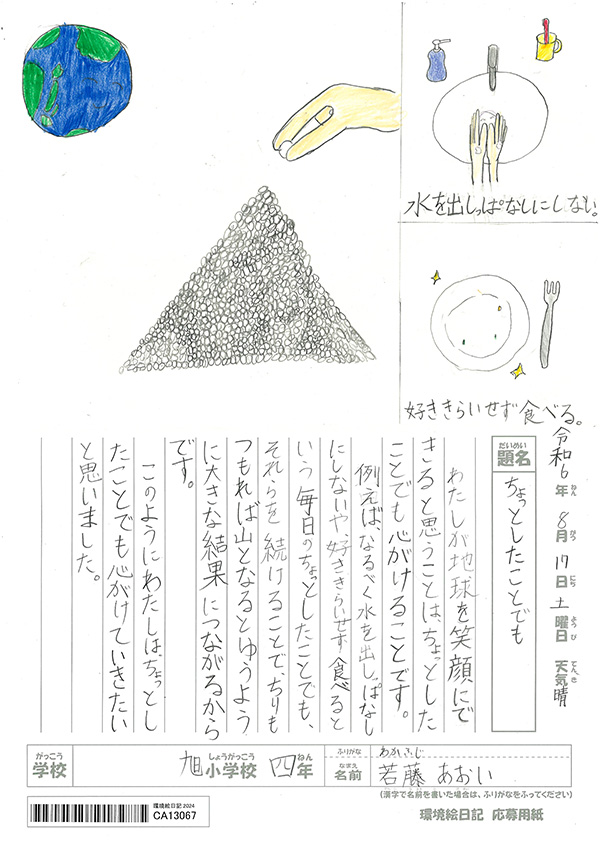 水を出しっぱなしにしない。
好ききらいせず食べる。
令和6年 8月17日 土曜日 天気 晴
ねん がつ にち ようび てんき
だいめい
題名
ちょっとしたことでも
わたしが地球を笑顔にで
きると思うことは、ちょっとした
ことでも心がけることです。
例えば、なるべく水を出しっぱなし
にしないや、好ききらいせず食べると
いう毎日のちょっとしたことでも、
それらを続けることで、ちりも
つもれば山となるとゆうよう
に大きな結果につながるから
です。
このようにわたしは、ちょっとし
たことでも心がけていきたい
と思いました。
がっこう
学校
しょうがっこう ねん
旭小学校 四年
ふりがな
なまえ
名前
若藤 あおい
(漢字で名前を書いた場合は、ふりがなをふってください)
環境絵日記2024
CA13067
環境絵日記 応募用紙